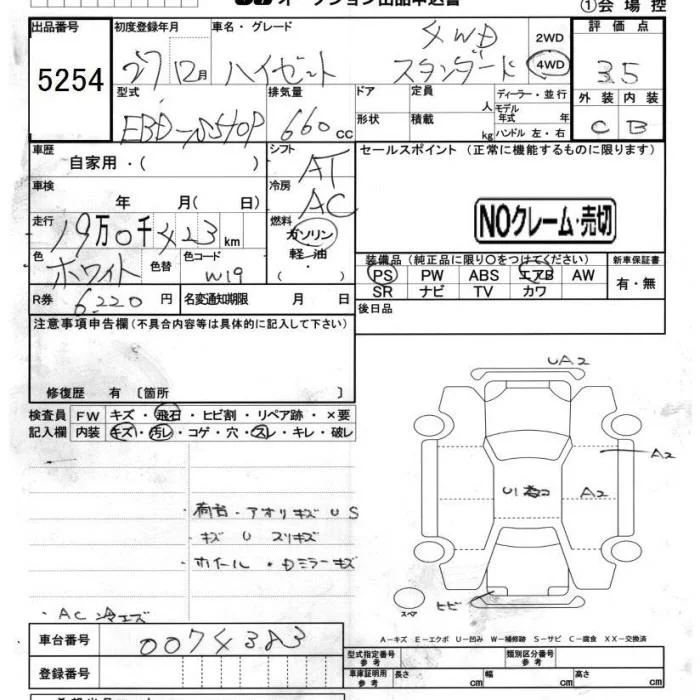 オークション出品申込書
①会場控
出品番号 5254
初度登録年月 27 12月
車名・グレード ハイゼット 4WD スタンダード
2WD
4WD
評価点 3.5
外装 内装
C B
型式 EBD-S510P
排気量 660 cc
ドア
形状
定員 人
積載 kg
ディーラー・並行
モデル年式 年
ハンドル 左・右
車歴 自家用・( )
シフト AT
車検 年 月( 日)
冷房 AC
走行 19万0千423km
燃料 ガソリン
軽油
( )
色 ホワイト 色替
色コード W19
R券 6220 円
名変通知期限 月 日
セールスポイント (正常に機能するものに限ります)
NOクレーム・売切
装備品(純正品に限り○をつけてください)
PS PW ABS エアB AW
SR ナビ TV カワ
新車保証書
有・無
後日品
注意事項申告欄(不具合内容等は具体的に記入して下さい)
修復歴 有〔箇所 〕
検査員 FW キズ・飛石・ヒビ割・リペア跡・×要
記入欄 内装 キズ・汚レ・コゲ・穴・スレ・キレ・破レ
・荷台・アオリキズ U S
・キズ U スリキズ
・ホイール・ロミラーキズ
・AC 冷エズ
UA2
A2
A2
U1
ヒビ
スペア
A-キズ E-エクボ U-凹み W-補修跡 S-サビ C-腐食 XX-交換済
車台番号 0074383
登録番号
型式指定番号
参考
類別区分番号
参考
車庫証明用
参考
長さ cm
幅 cm
高さ cm